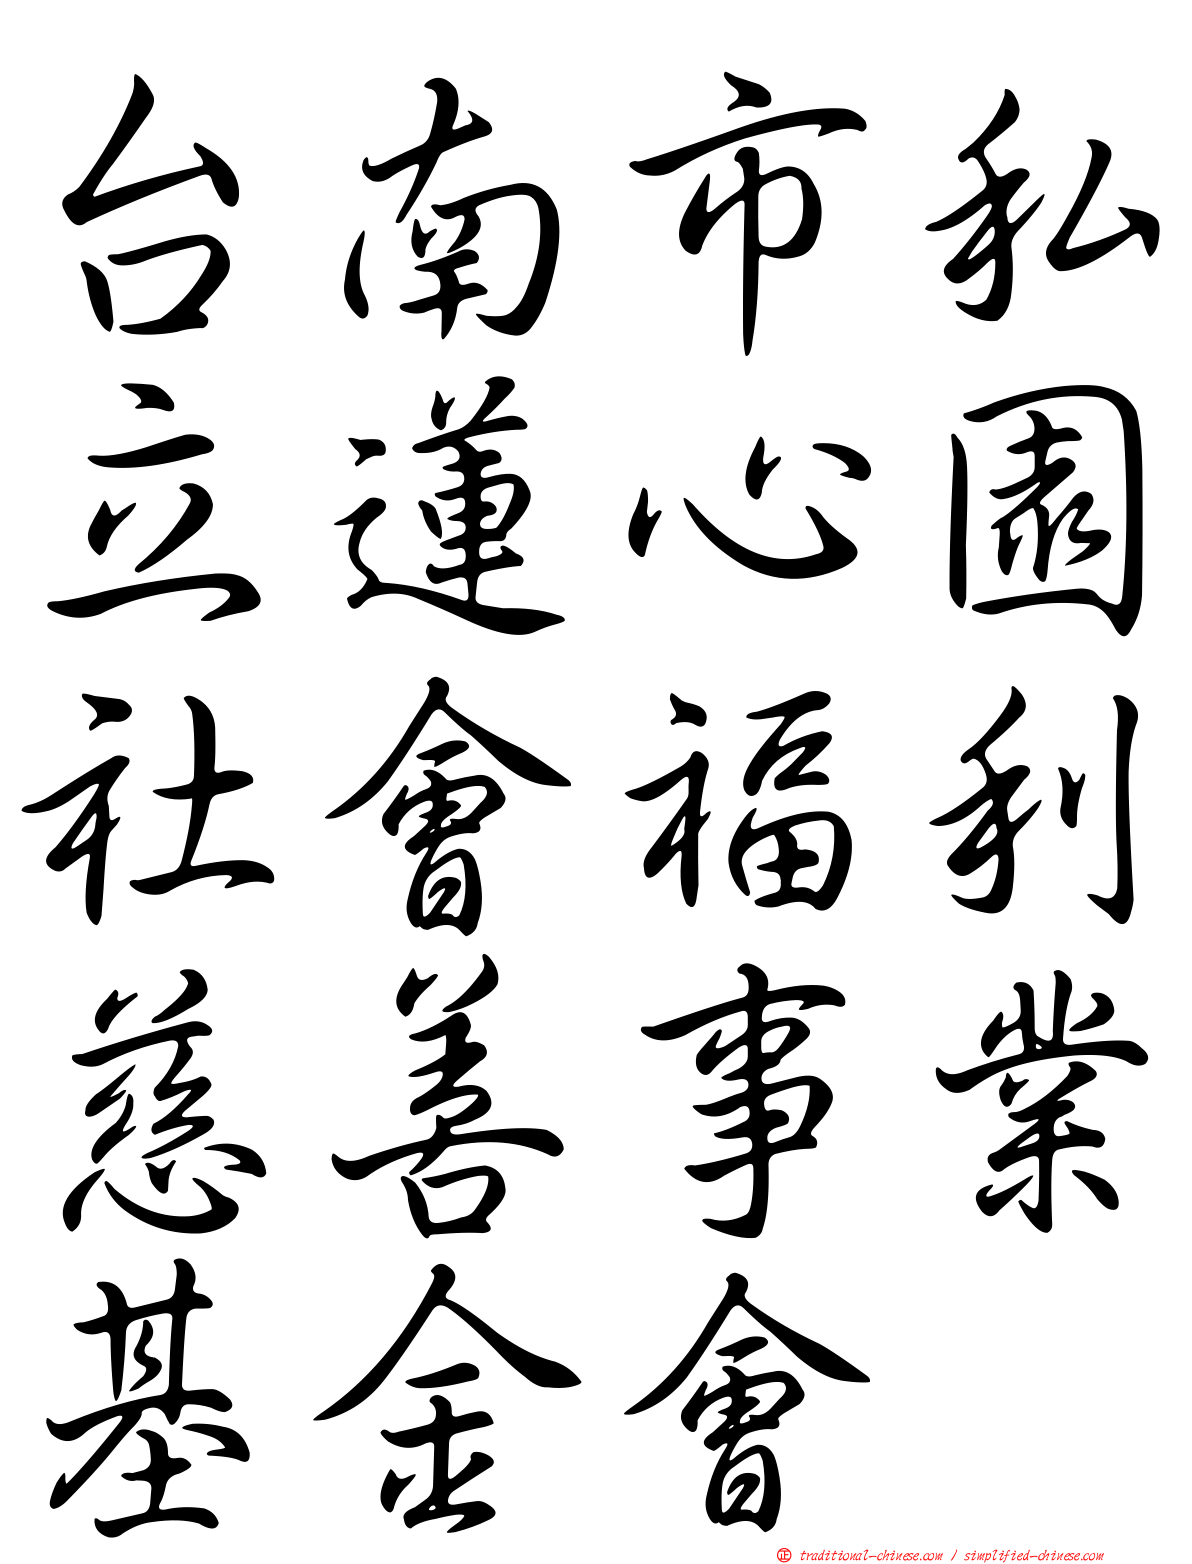 台南市私
立蓮心園
社會福利
慈善事業
基金會
正 traditional-chinese.com / simplified-chinese.com